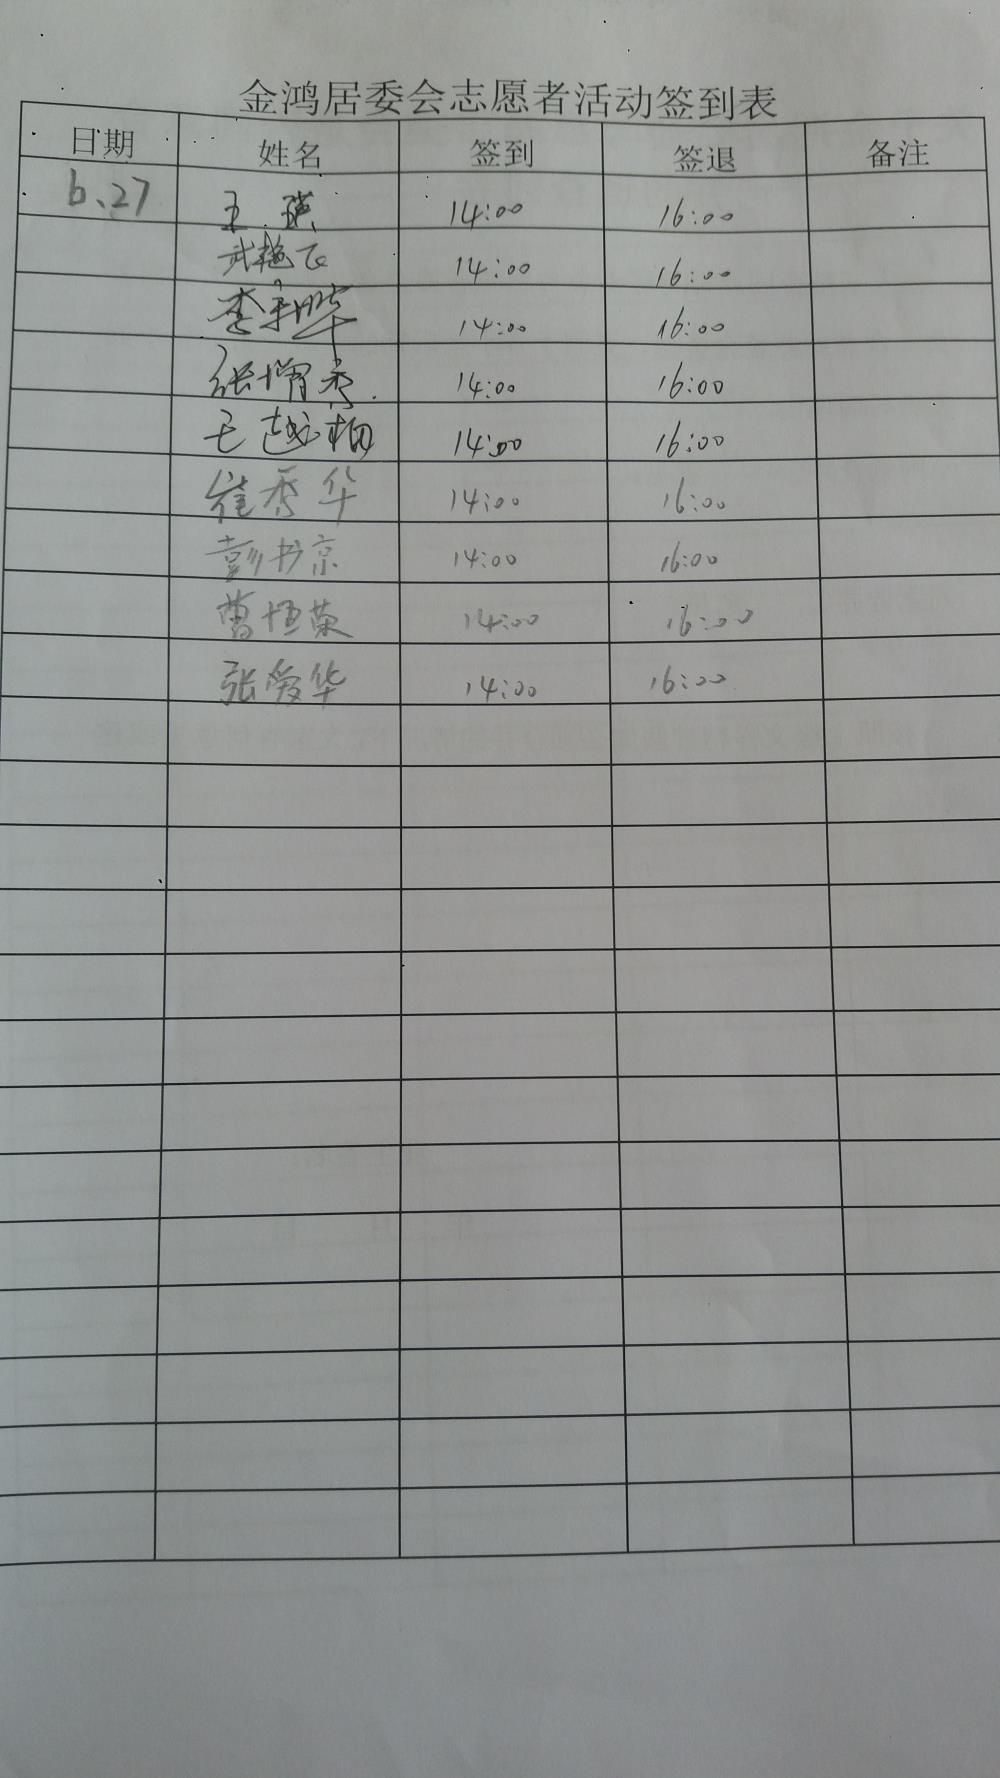 金鸿居委会志愿者活动签到表
日期 姓名 签到 签退 备注
6.27 王瑛 14:00 16:00
武艳飞 14:00 16:00
李 14:00 16:00
张增秀 14:00 16:00
王越相 14:00 16:00
崔秀华 14:00 16:00
彭书京 14:00 16:00
曹恒荣 14:00 16:00
张爱华 14:00 16:00